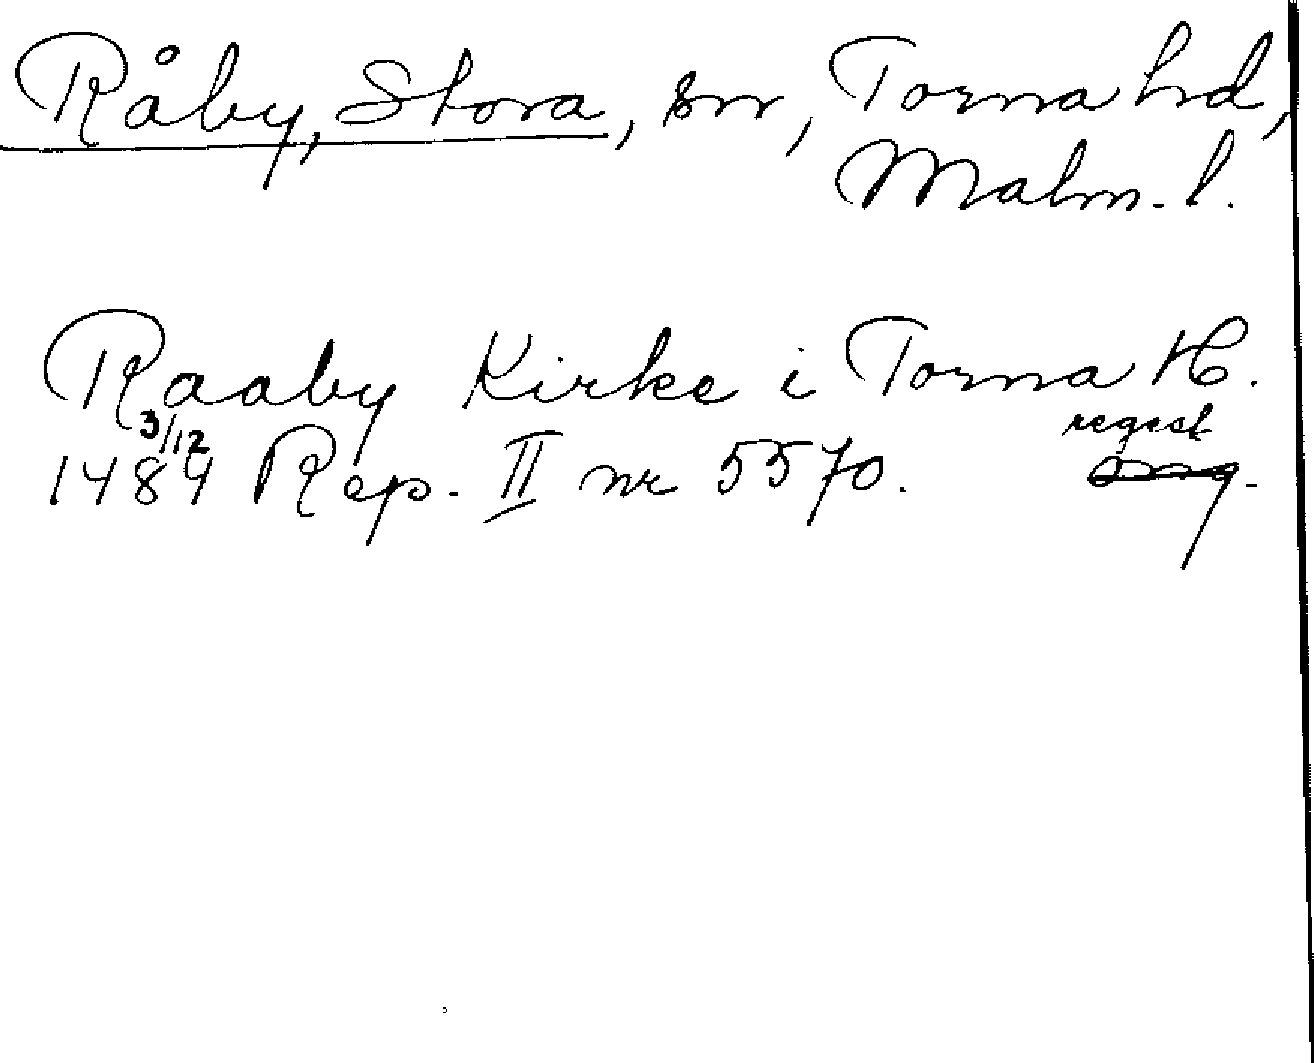 Råby, Stora, sn, Torna hd,
Malm. l.
Raaby Kirke i Torna H.
3/12 regest
1484 Rep. II nr 5570.